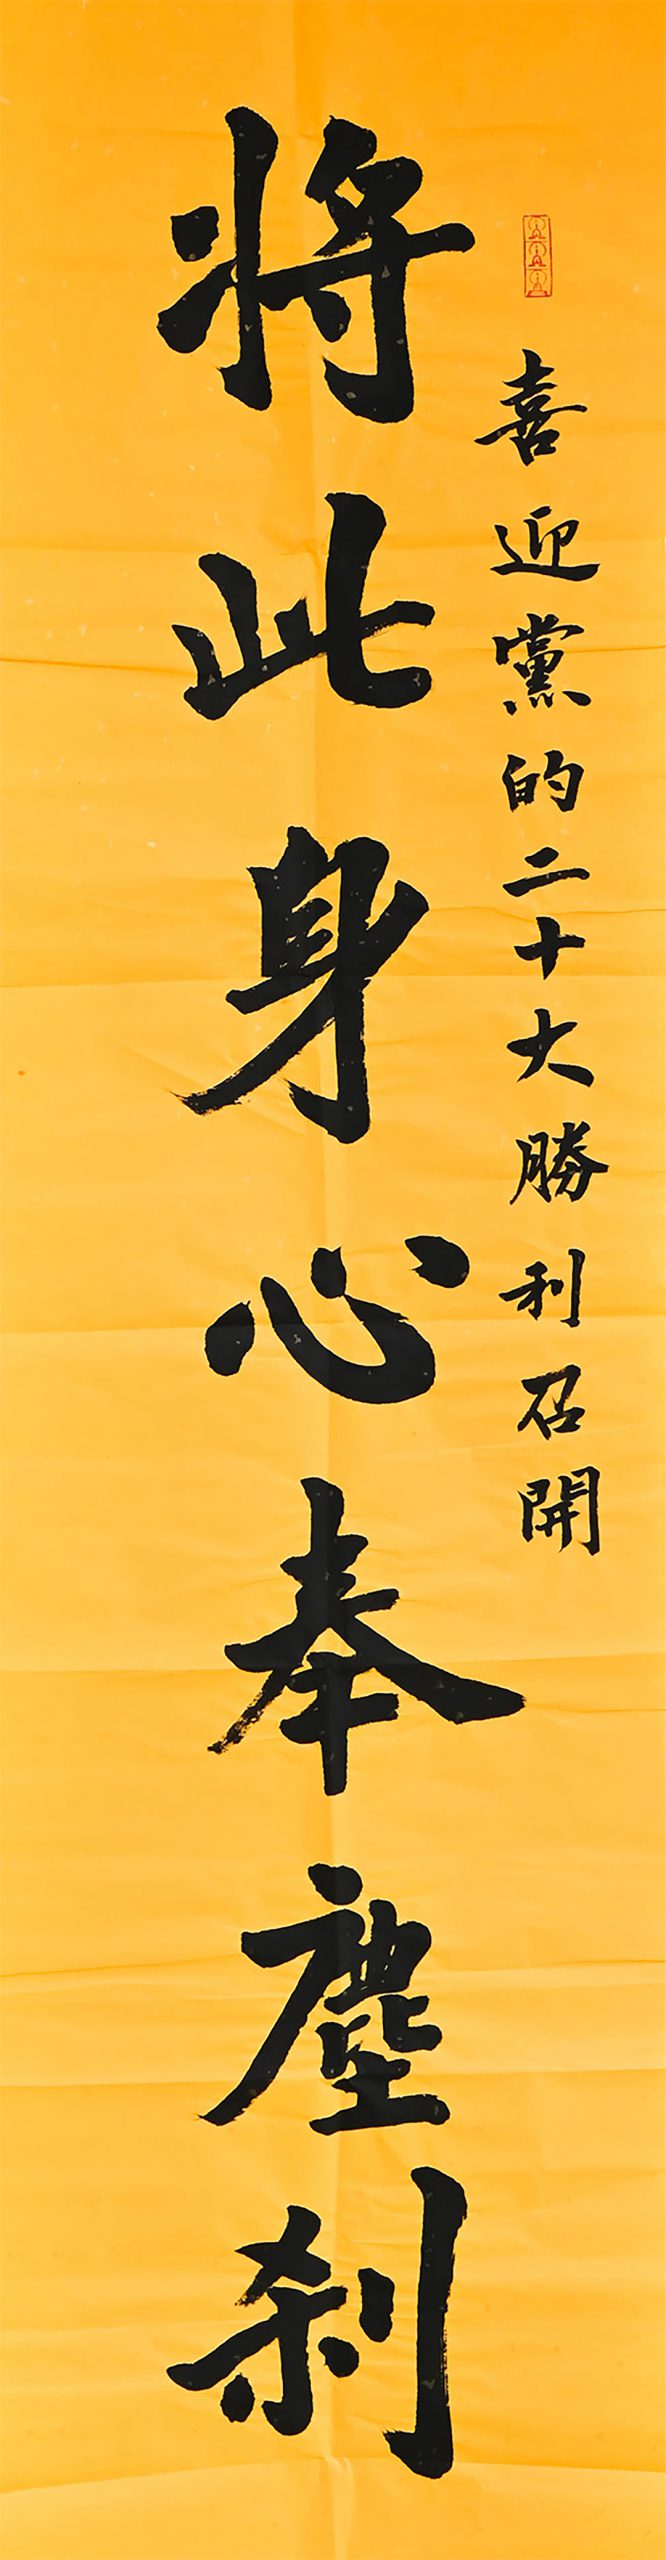 喜迎黨的二十大勝利召開
將此身心奉塵刹